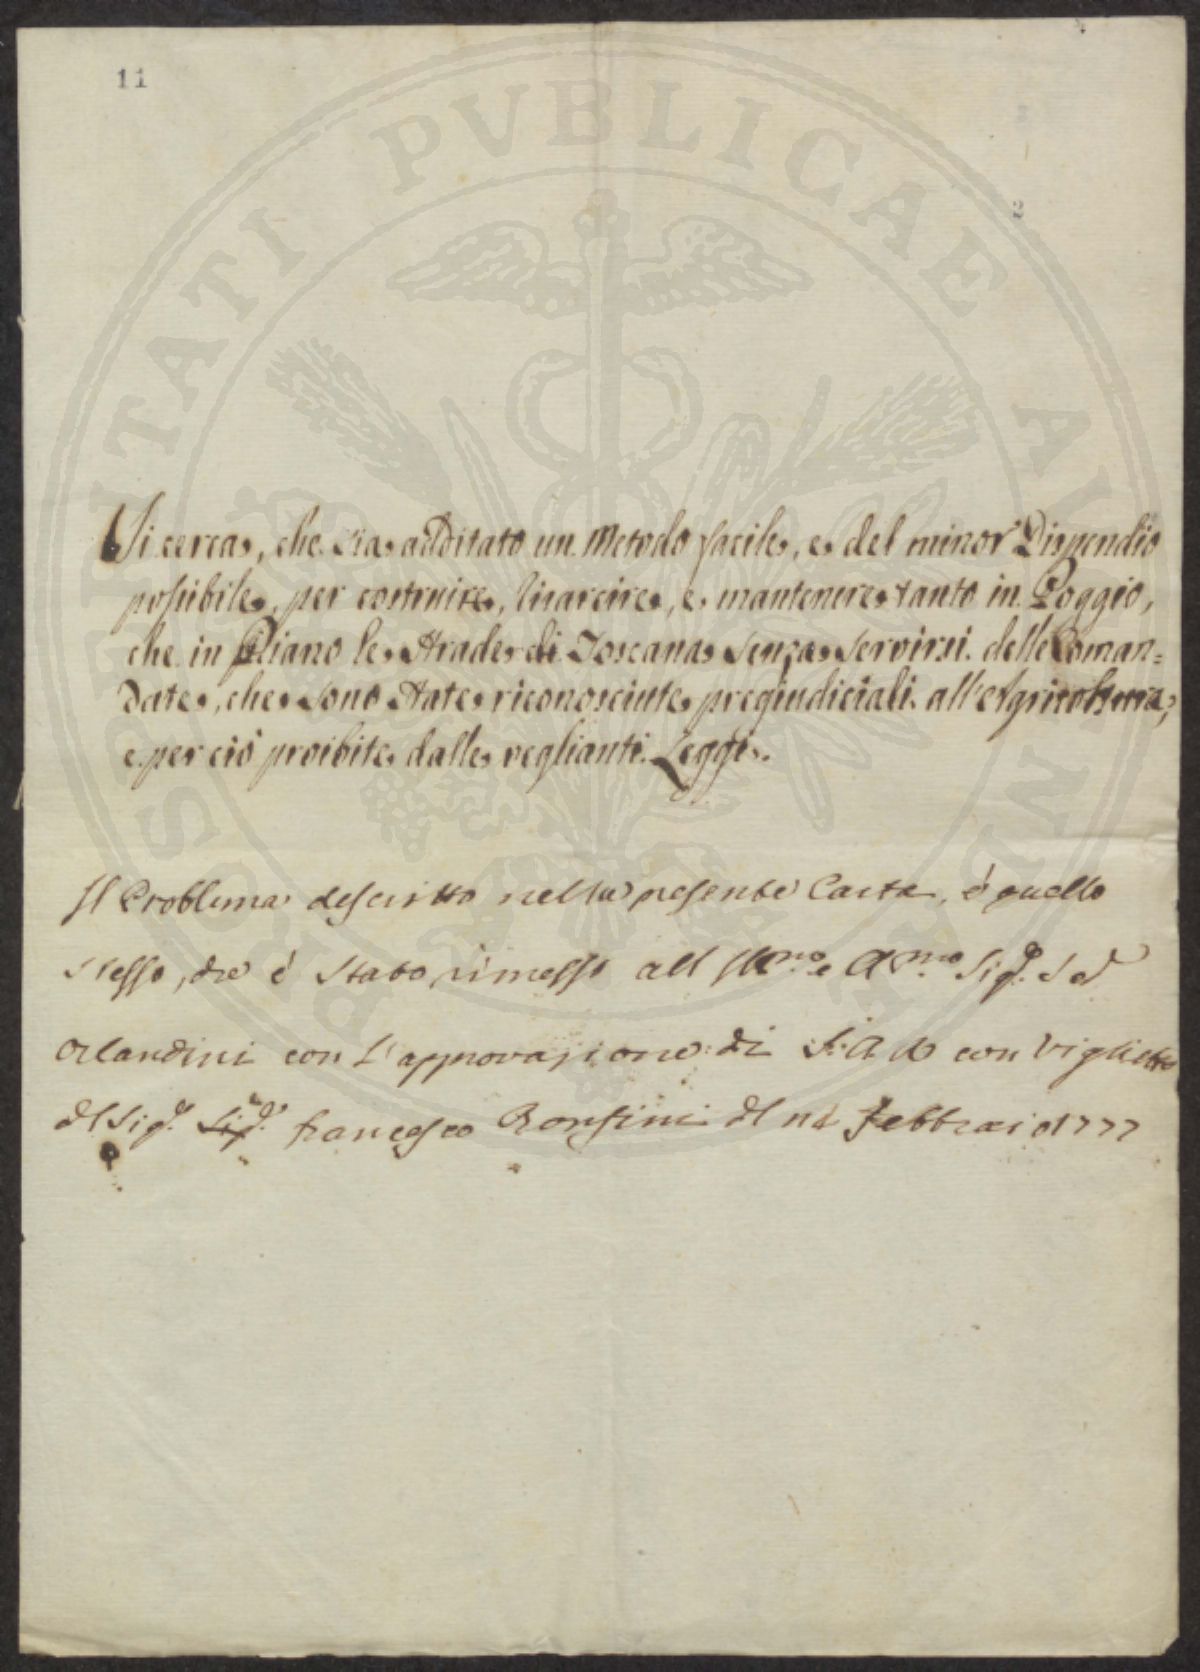 11
2
PROSPERITATI PVBLICAE AVGENDAE
Si cerca, che sia additato un Metodo facile, e del minor Dispendio
possibile, per costruire, risarcire, e mantenere tanto in Poggio,
che in Piano le Strade di Toscana senza servirsi delle Coman=
date, che sono state riconosciute pregiudiciali all'Agricoltura,
e per ciò proibite dalle veglianti Leggi.
Il Problema descritto nella presente Carta, é quello
stesso, che é stato rimesso all Ill.mo e Sig.
Orlandini con l'approvazione di S. A. R con Viglietto
del Sig. Sig. francesco del Febbraio 1777